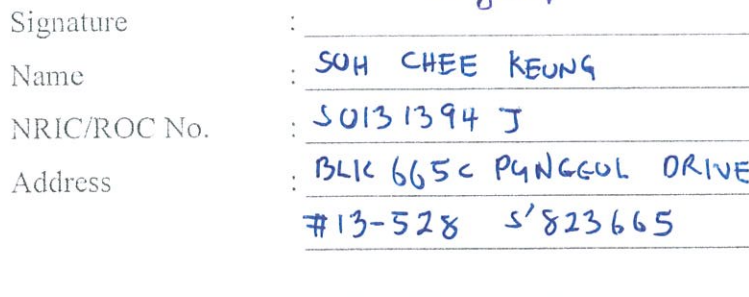 Signature :
Name : SOH CHEE KEUNG
NRIC/ROC No. : S0131394 J
Address : BLK 665C PUNGGOL DRIVE
#13-528 S'823665